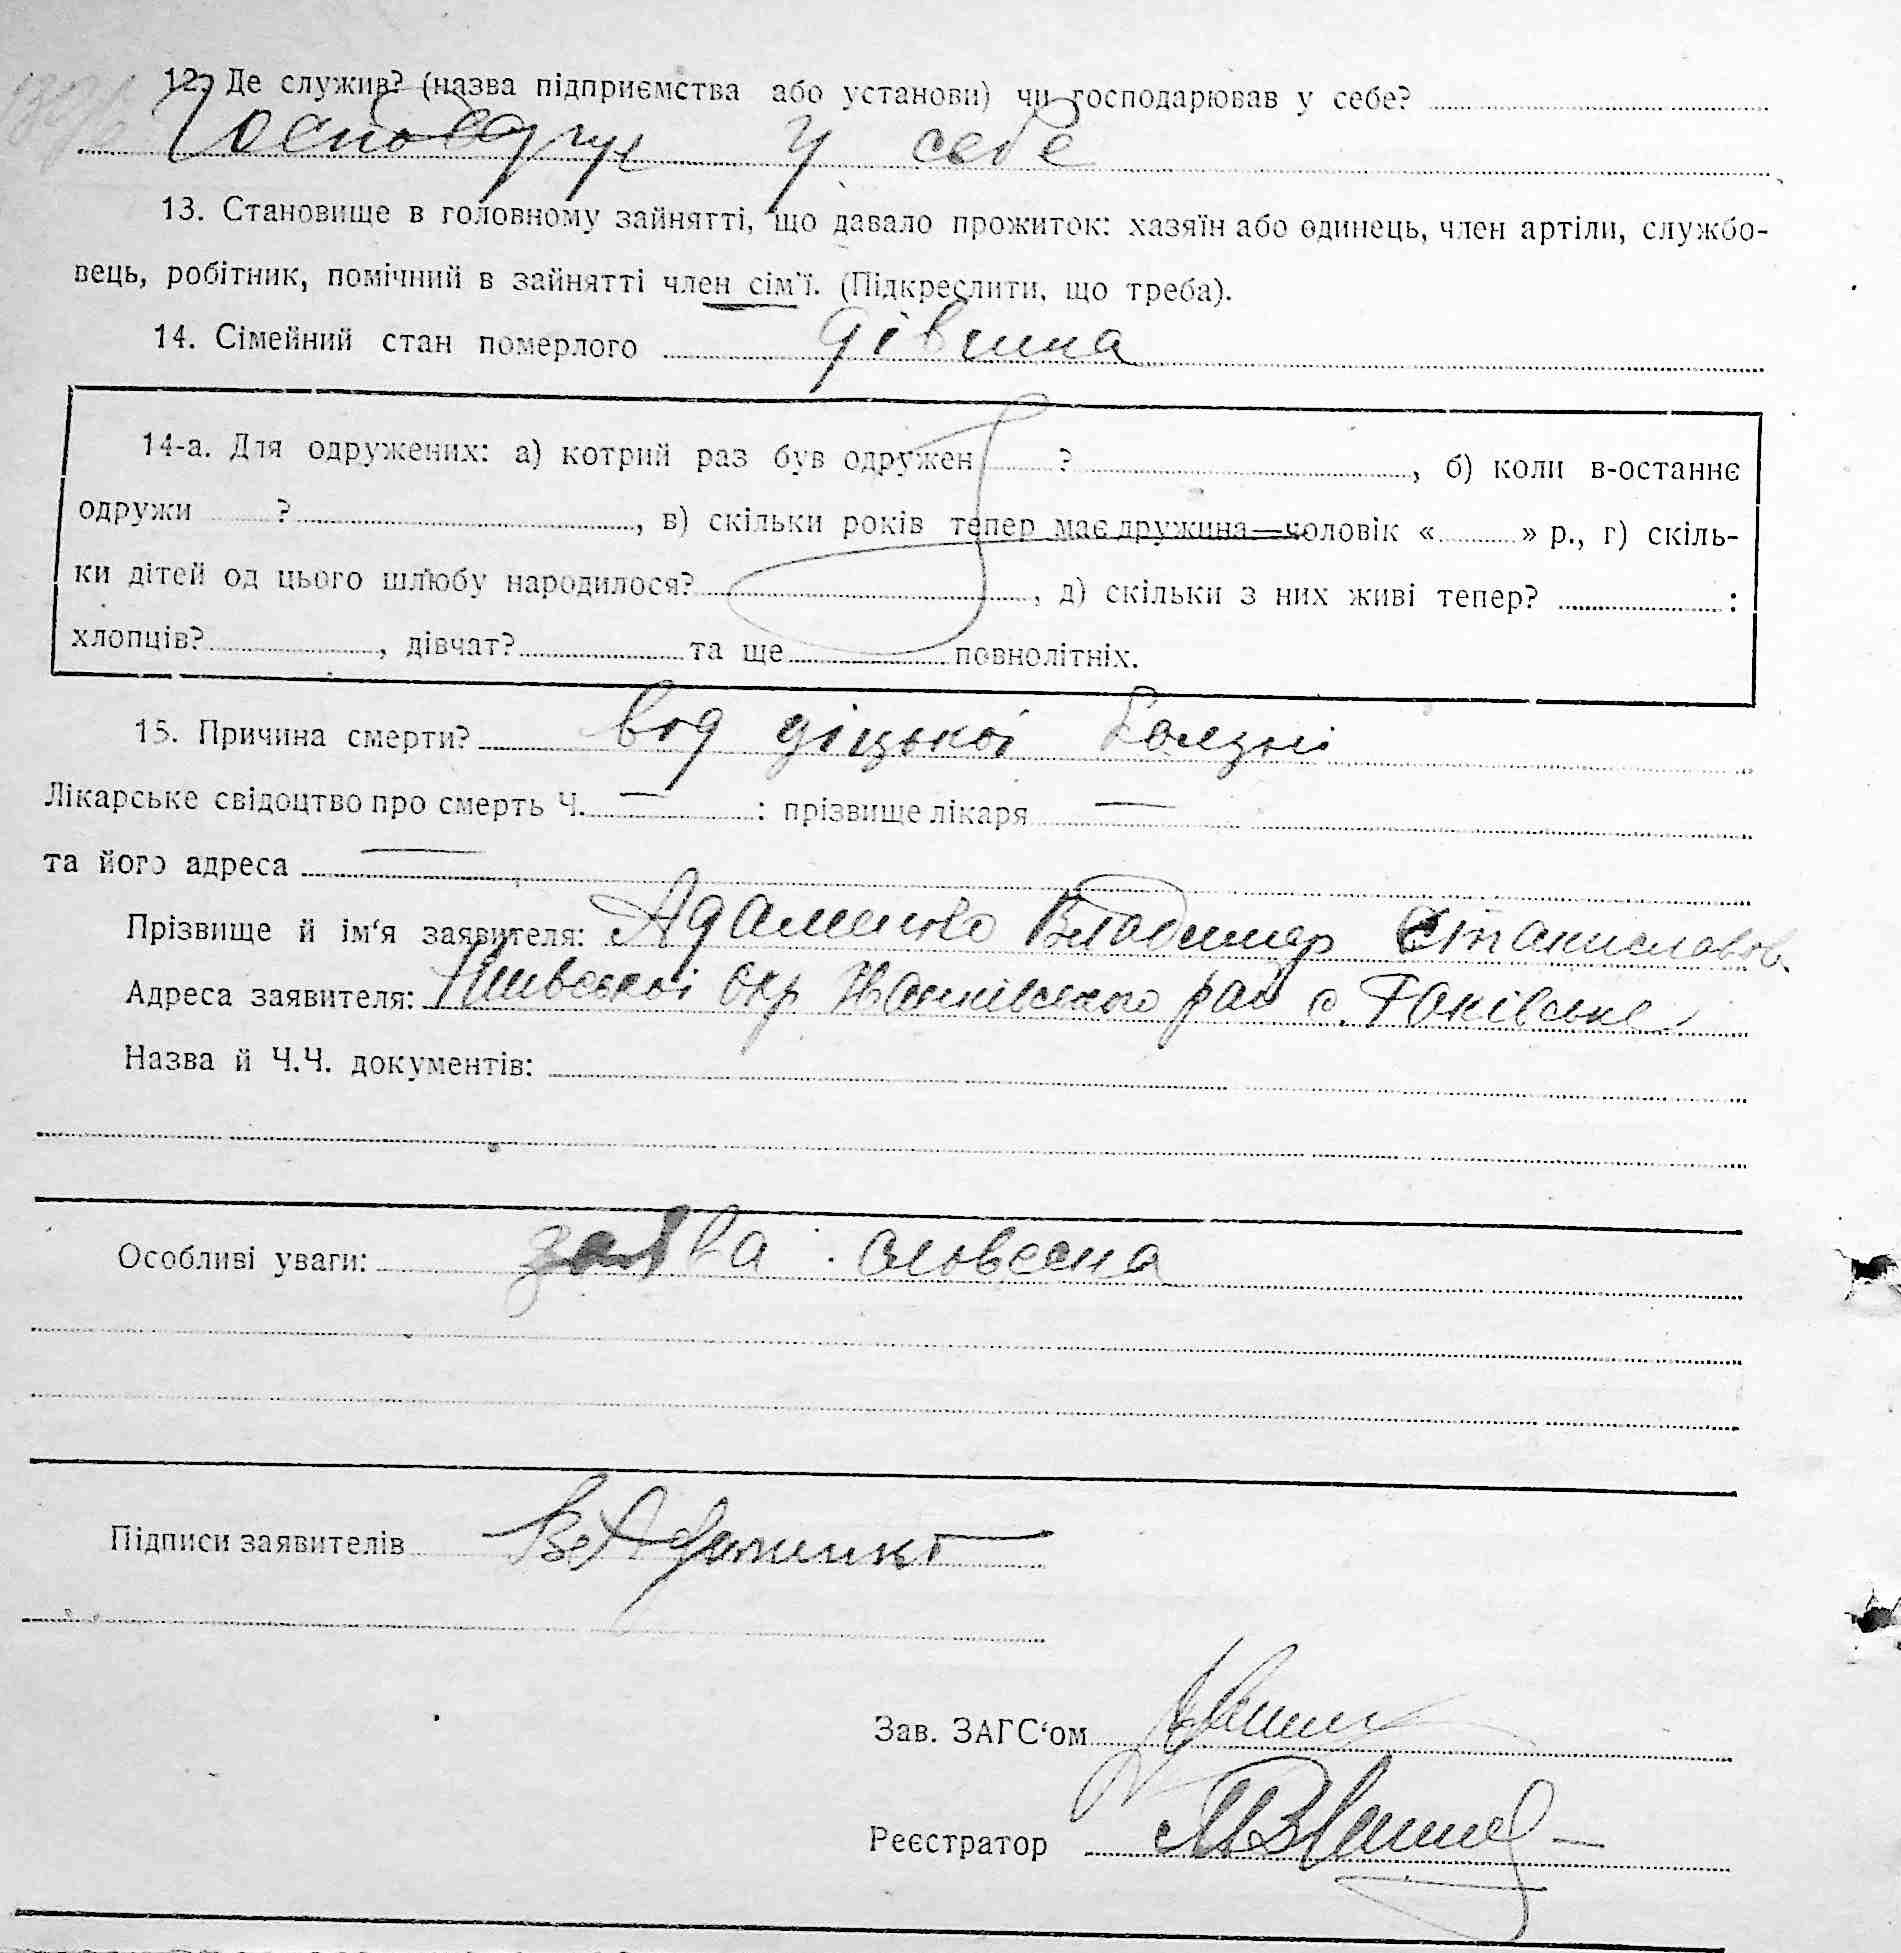 12. Де служив? (назва підприємства або установи) чи господарював у себе?
у себе
13. Становище в головному зайнятті, що давало прожиток: хазяїн або одинець, член артіли, службо-
вець, робітник, помічний в зайнятті член сім'ї. (Підкреслити, що треба).
14. Сімейний стан померлого дівчина
14-а. Для одружених: а) котрий раз був одружен ? , б) коли в-останнє
одружи ? , в) скільки років тепер має дружина—чоловік « » р., г) скіль-
ки дітей од цього шлюбу народилося? , д) скільки з них живі тепер? :
хлопців? , дівчат? та ще повнолітніх.
15. Причина смерти? вод діцької болезні
Лікарське свідоцтво про смерть Ч. — : прізвище лікаря —
та його адреса —
Прізвище й ім'я заявителя: Адаменко Владимир Станиславов.
Адреса заявителя: Окр рай с.
Назва й Ч.Ч. документів:
Особливі уваги: заява словесна
Підписи заявителів
Зав. ЗАГС'ом
Реєстратор